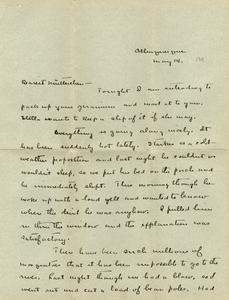 Albuquerque
May 14.
Dearest Mütterchen—
Tonight I am intending to
pack up your geranium and mail it to you.
Stella wants to keep a slip of it if she may.
Everything is going along nicely. It
has been suddenly hot lately. is a cold-
weather proposition and last night he couldn't or
wouldn't sleep, so we put his bed on the porch and
he immediately slept. This morning though he
woke up with a loud yell and wanted to know
where the devil he was anyhow. I pulled him
in thru the window and the explanation was
satisfactory.
There have been such millions of
mosquitos that it has been impossible to go to the
river. Last night though we had a blow, so I
went out and cut a load of bean poles. Had